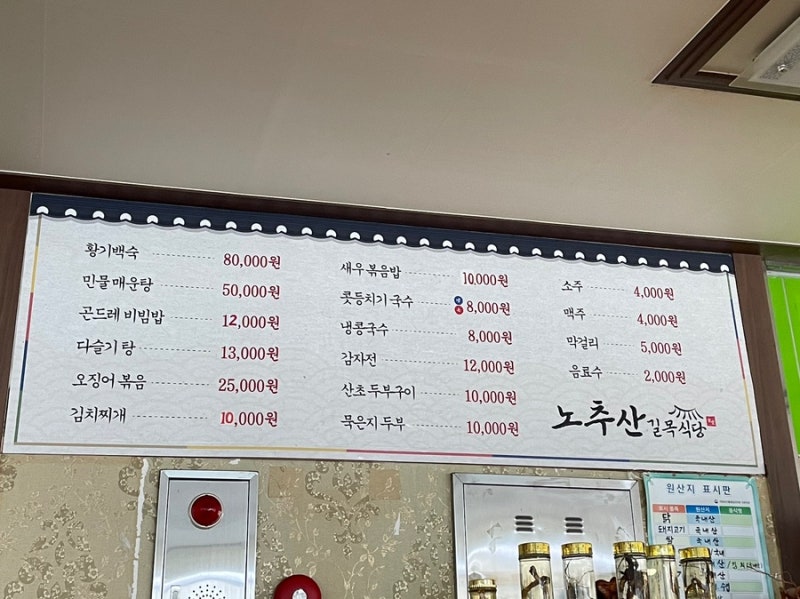 황기백숙 80,000원
민물매운탕 50,000원
곤드레 비빔밥 12,000원
다슬기탕 13,000원
오징어볶음 25,000원
김치찌개 10,000원
새우볶음밥 10,000원
콧등치기 국수 8,000원
냉콩국수 8,000원
감자전 12,000원
산초두부구이 10,000원
묵은지두부 10,000원
소주 4,000원
맥주 4,000원
막걸리 5,000원
음료수 2,000원
노추산 길목식당
원산지 표시판
표시 품목 원산지 음식명
닭 국내산
돼지고기 국내산
쌀 국내산